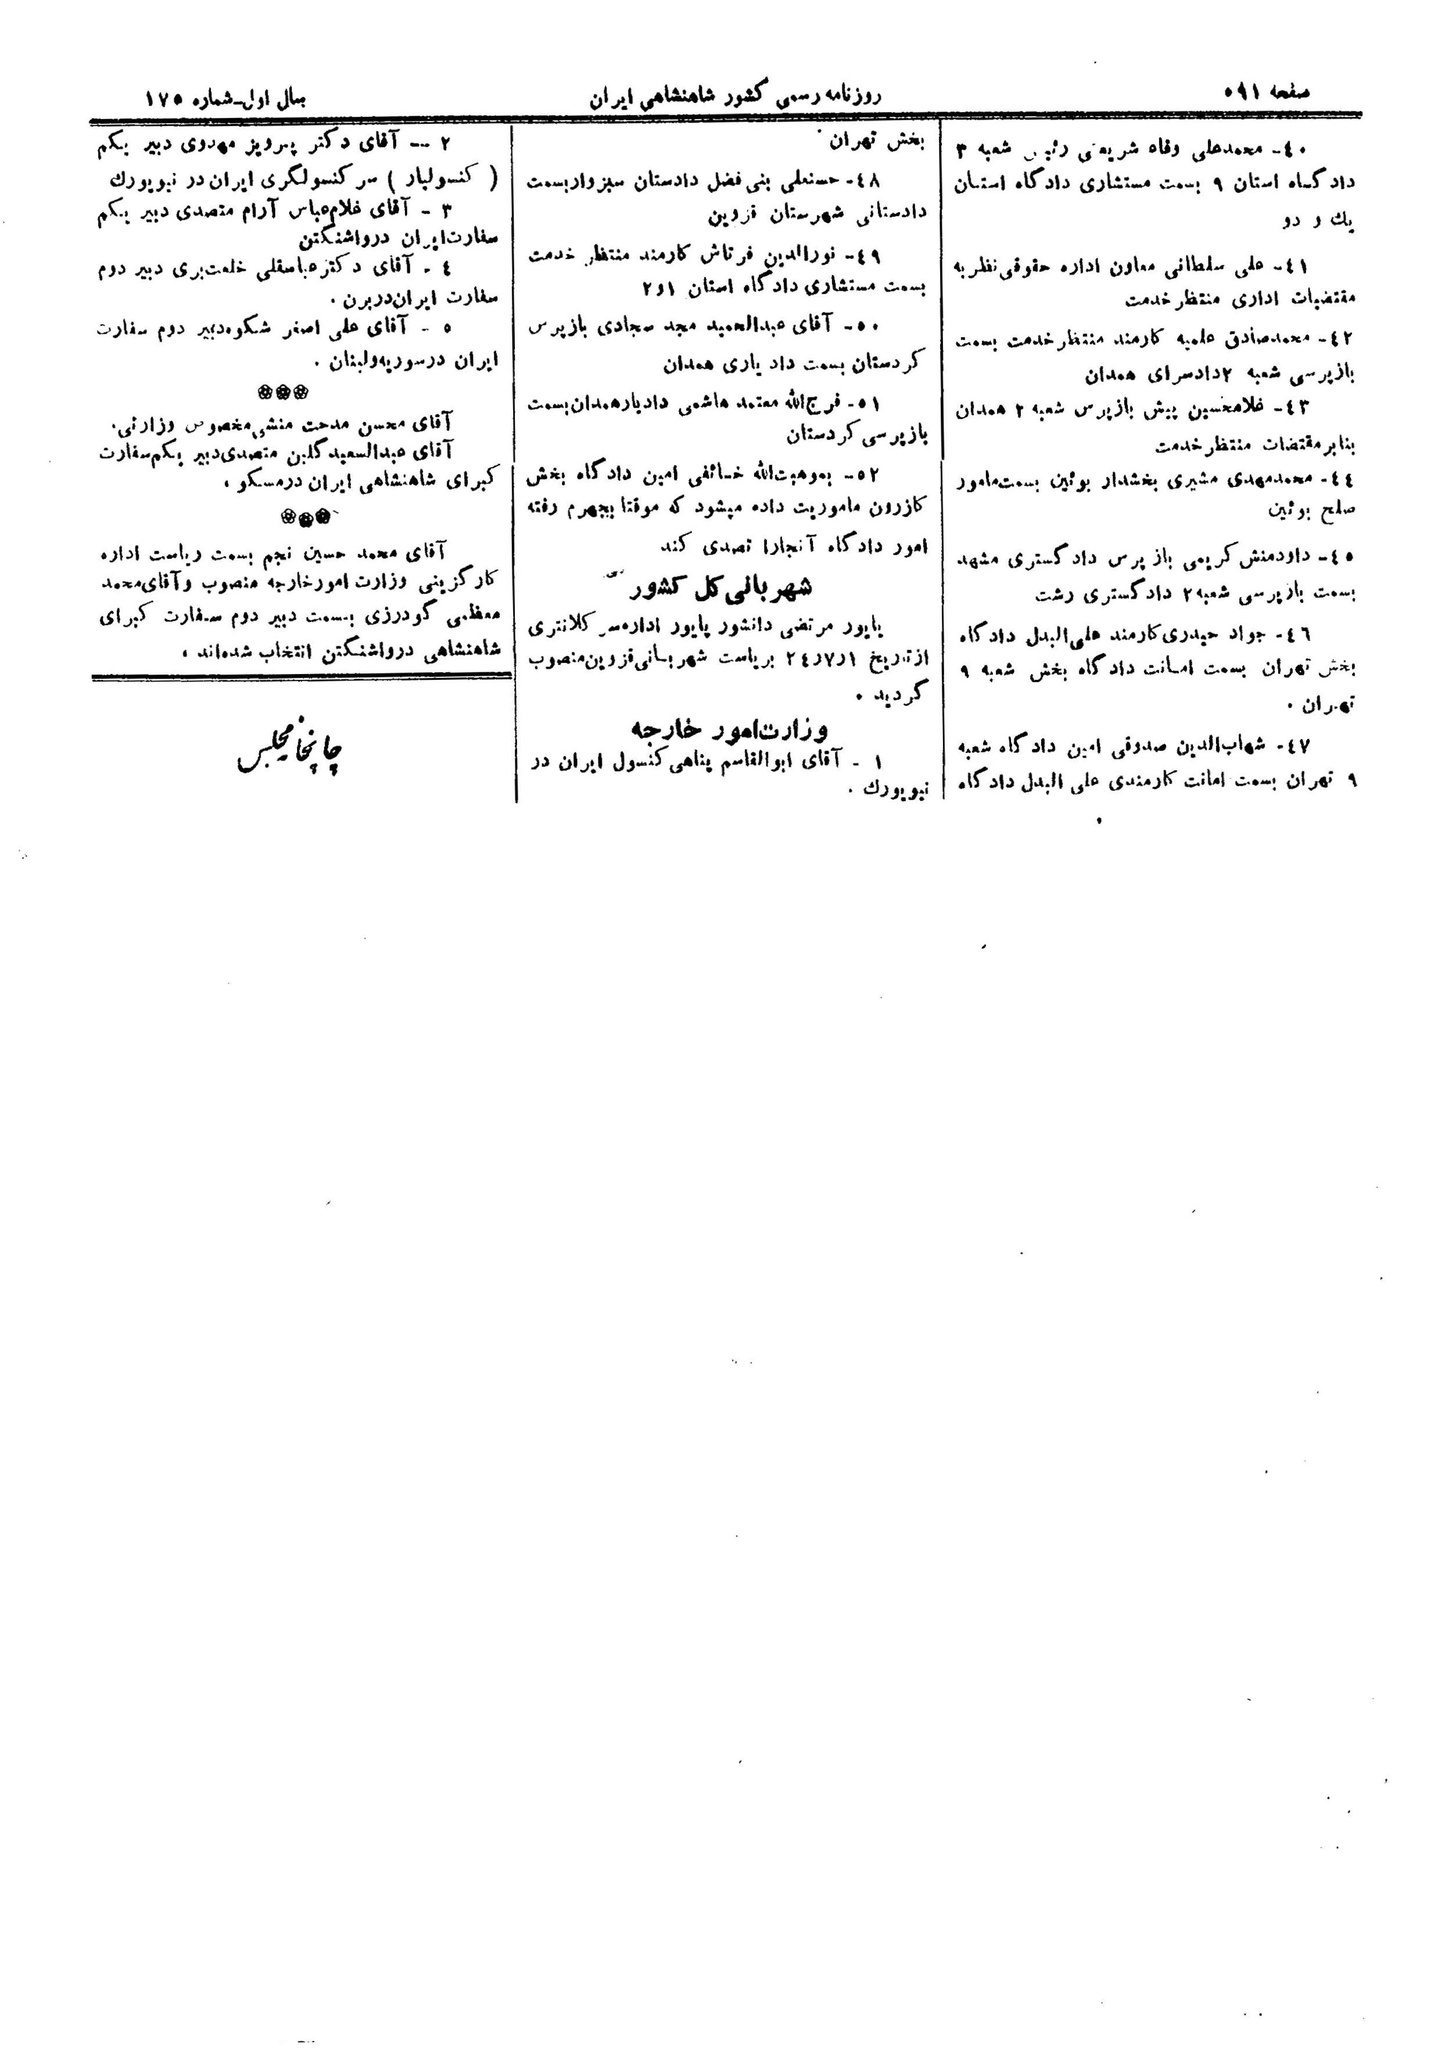 صفحه ۵۹۱
روزنامه رسمی کشور شاهنشاهی ایران
سال اول-شماره ۱۷۵
۴۰- محمدعلی وفاه شریعتی رئیس شعبه ۳
دادگاه استان ۹ بسمت مستشاری دادگاه استان
یک و دو
۴۱- علی سلطانی معاون اداره حقوقی نظر به
مقتضیات اداری منتظر خدمت
۴۲- محمدصادق علمیه کارمند منتظر خدمت بسمت
بازپرسی شعبه ۲ دادسرای همدان
۴۳- غلامحسین پیش بازپرس شعبه ۲ همدان
بنابر مقتضات منتظر خدمت
۴۴- محمدمهدی مشیری بخشدار بوئین بسمت مامور
صلح بوئین
۴۵- داودمنش کریمی بازپرس دادگستری مشهد
بسمت بازپرسی شعبه ۲ دادگستری رشت
۴۶- جواد حیدری کارمند علی البدل دادگاه
بخش تهران بسمت امانت دادگاه بخش شعبه ۹
تهران .
۴۷- شهاب الدین صدوقی امین دادگاه شعبه
۹ تهران بسمت امانت کارمندی علی البدل دادگاه
بخش تهران
۴۸- حسنعلی بنی فضل دادستان سبزوار بسمت
دادستانی شهرستان قزوین
۴۹- نورالدین فرتاش کارمند منتظر خدمت
بسمت مستشاری دادگاه استان ۱و۲
۵۰- آقای عبدالحمید مجد سجادی بازپرس
کردستان بسمت داد یاری همدان
۵۱- فرج الله معتمد هاشمی دادیار همدان بسمت
بازپرسی کردستان
۵۲- بموهبت الله خسائفی امین دادگاه بخش
کازرون ماموریت داده میشود که موقتا بجهرم رفته
امور دادگاه آنجارا تصدی کند
شهربانی کل کشور
پایور مرتضی دانشور پایور اداره سر کلانتری
از تاریخ ۲۴ر۷ر۱ بریاست شهربانی قزوین منصوب
گردید .
وزارت امور خارجه
۱ - آقای ابوالقاسم پناهی کنسول ایران در
نیویورک .
۲ -- آقای دکتر پرویز مهدوی دبیر یکم
( کنسولیار ) سر کنسولگری ایران در نیویورک
۳ - آقای غلامعباس آرام متصدی دبیر یکم
سفارت ایران درواشنگتن
۴ - آقای دکتر عباسقلی خلعت بری دبیر دوم
سفارت ایران دربرن .
۵ - آقای علی اصغر شکوه دبیر دوم سفارت
ایران درسوریه ولبنان .
آقای محسن مدحت منشی مخصوص وزارتی .
آقای عبدالسعید گلبن متصدی دبیر یکم سفارت
کبرای شاهنشاهی ایران درمسکو .
آقای محمد حسین نجم بسمت ریاست اداره
کارگزینی وزارت امورخارجه منصوب و آقای محمد
معظمی گودرزی بسمت دبیر دوم سفارت کبرای
شاهنشاهی درواشنگتن انتخاب شده اند .
چاپخانه مجلس